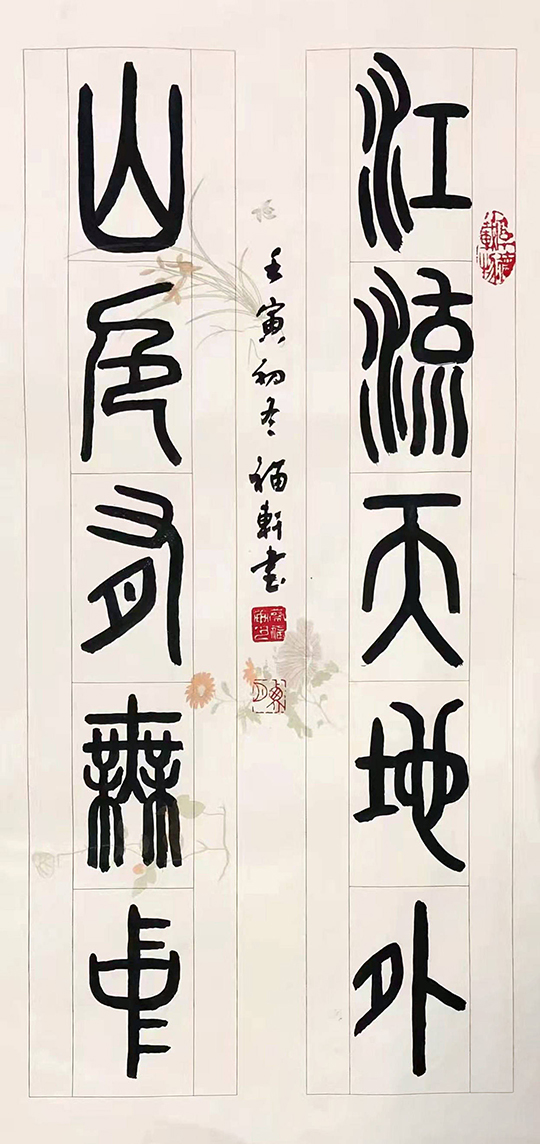 江流天地外
山色有無中
壬寅初冬福軒書
厚德載物